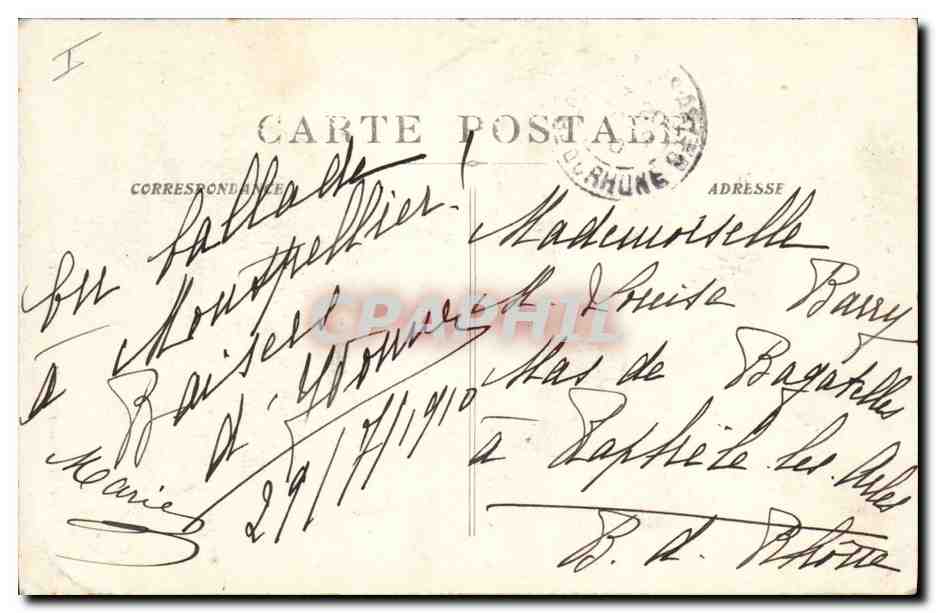 I
CARTE POSTALE
CORRESPONDANCE
ADRESSE
En ballade
à Montpellier.
Baisers
d'Yvonne
29/7/1910
Marie
Mademoiselle
M. Louise Barry
Mas de Bagatelles
à Raphèle-les-Arles
B. d. Rhône
RHONE
CPAPHIL